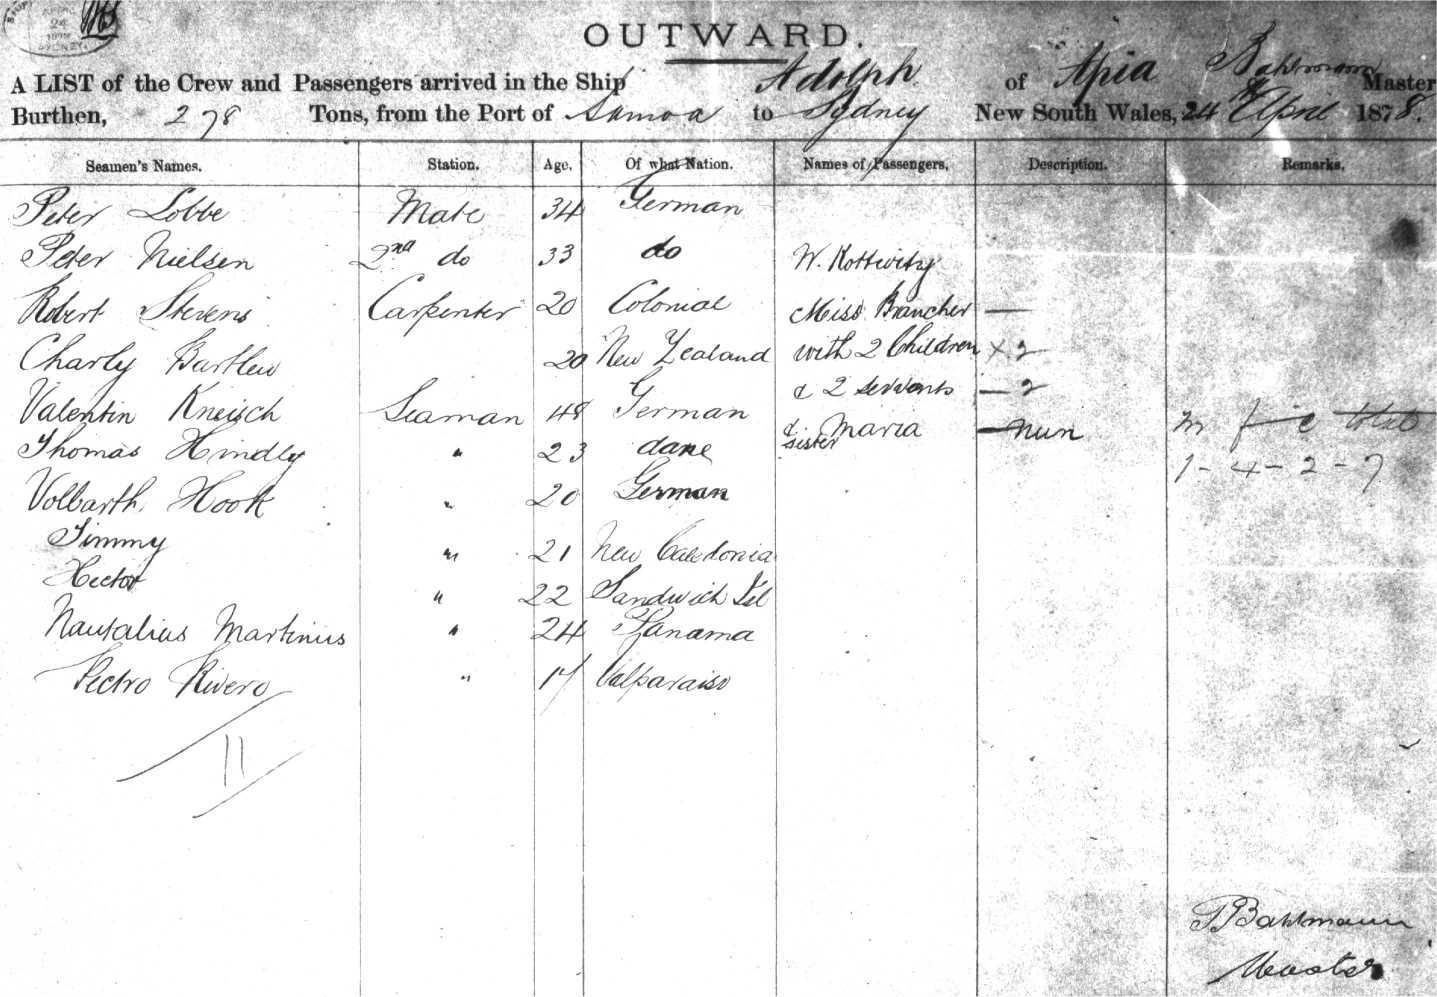 APRIL
24
1878
SYDNEY.
OUTWARD.
A LIST of the Crew and Passengers arrived in the Ship Adolph of Apia Bahlmann Master
Burthen, 278 Tons, from the Port of Samoa to Sydney New South Wales, 24 April 1878.
Seamen's Names. Station. Age. Of what Nation. Names of Passengers. Description. Remarks.
Peter Lobbe Mate 34 German
Peter Nielsen 2nd do 33 do W. Kottwitz
Robert Stevens Carpenter 20 Colonial Miss Brancher —
Charly 20 New Zealand with 2 Children x 2
& 2 servants — 2
Valentin Kneisch Seaman 48 German
& sister Maria — nun
Thomas Hindly " 23 dane
m f c total
1 - 4 - 2 - 7
Volbarth Hook " 20 German
Jimmy " 21 New Caledonia
Hector " 22 Sandwich Isl
Nautalius Martinus " 24 Panama
Pedro Rivero " 17 Valparaiso
11
Bahlmann
Master